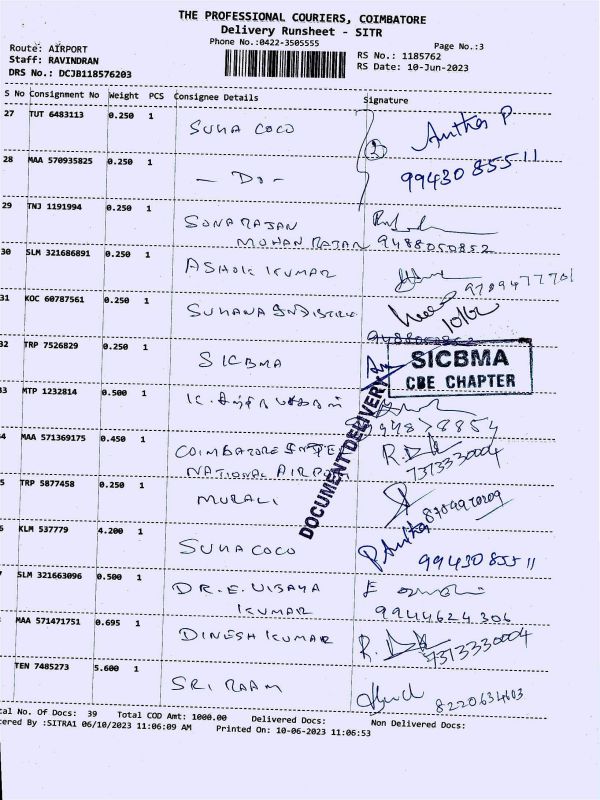 THE PROFESSIONAL COURIERS, COIMBATORE
Delivery Runsheet - SITR
Phone No.:0422-3505555
Page No.:3
Route: AIRPORT
Staff: RAVINDRAN
DRS No.: DCJB118576203
RS No.: 1185762
RS Date: 10-Jun-2023
S No Consignment No Weight PCS Consignee Details Signature
27 TUT 6483113 0.250 1 SUHA COCO Anitha P
2
99430 85511
28 MAA 570935825 0.250 1 - Do -
29 TNJ 1191994 0.250 1 SONA RAJAN
MOHAN RAJAN 9488050852
30 SLM 321686891 0.250 1 ASHOK KUMAR 9789477701
31 KOC 60787561 0.250 1 SUHANA
10/6
9488050852
32 TRP 7526829 0.250 1 SICBMA
SICBMA
CBE CHAPTER
33 MTP 1232814 0.500 1
DOCUMENT DELIVERY
4 MAA 571369175 0.450 1 COIMBATORE INTER
NATIONAL AIRPORT
7373330004
5 TRP 5877458 0.250 1 MURALI
6 KLM 537779 4.200 1 SUHA COCO P Anitha
99430 85511
7 SLM 321663096 0.500 1 DR. E. VIJAYA
KUMAR 9944624306
MAA 571471751 0.695 1 DINESH KUMAR
7373330004
TEN 7485273 5.600 1 SRI RAAM
8220634603
tal No. Of Docs: 39 Total COD Amt: 1000.00 Delivered Docs: Non Delivered Docs:
ered By :SITRA1 06/10/2023 11:06:09 AM Printed On: 10-06-2023 11:06:53